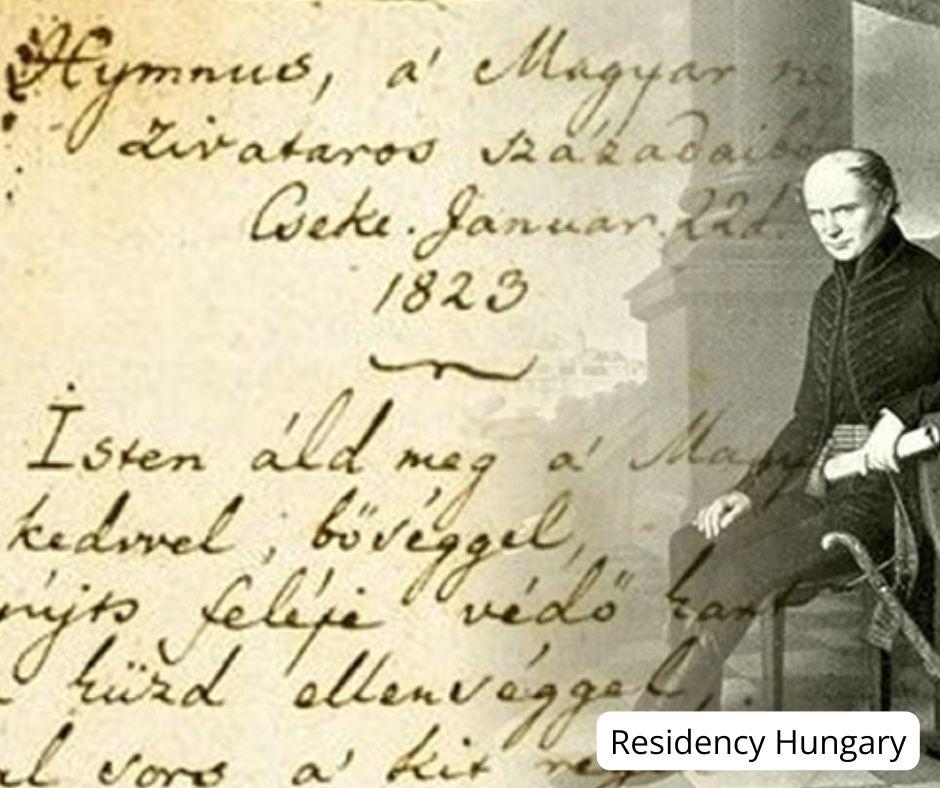 Hymnus, a' Magyar né
Zivataros századaibó
Cseke. Januar. 22d.
1823
Isten áld meg a' Magy
kedvvel, bőséggel,
nyújts feléje védő kart
küzd ellenséggel,
al sors a' kit rég
Residency Hungary